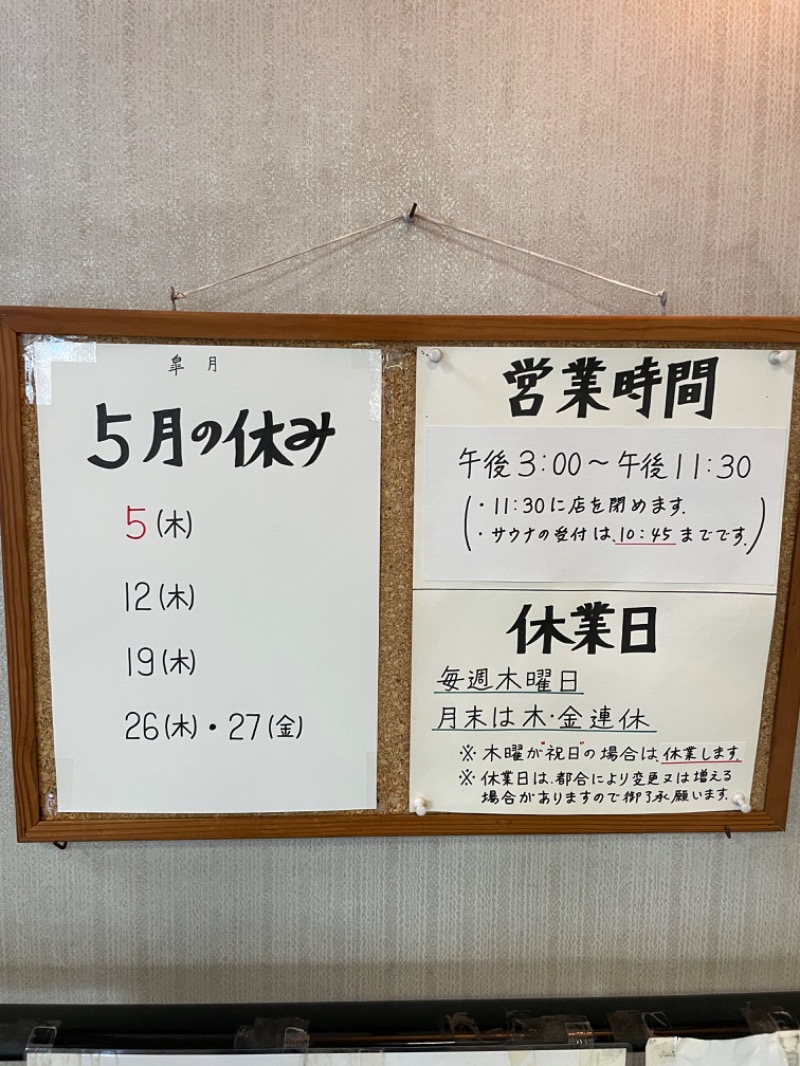 皐月
5月の休み
5(木)
12(木)
19(木)
26(木)・27(金)
営業時間
午後3:00〜午後11:30
(・11:30に店を閉めます.
・サウナの受付は、10:45までです.)
休業日
毎週木曜日
月末は木・金連休
※木曜が"祝日"の場合は、休業します.
※休業日は、都合により変更又は増える
場合がありますので御了承願います.